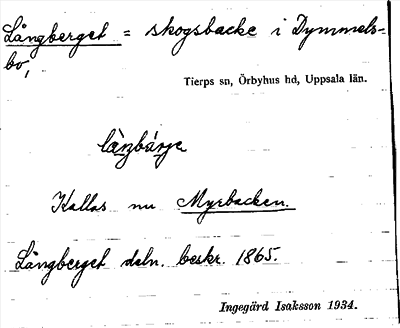 Långberget = skogsbacke i Dymmels-
bo,
Tierps sn, Örbyhus hd, Uppsala län.
Kallas nu Myrbacken.
Långberget deln. beskr. 1865.
Ingegärd Isaksson 1934.